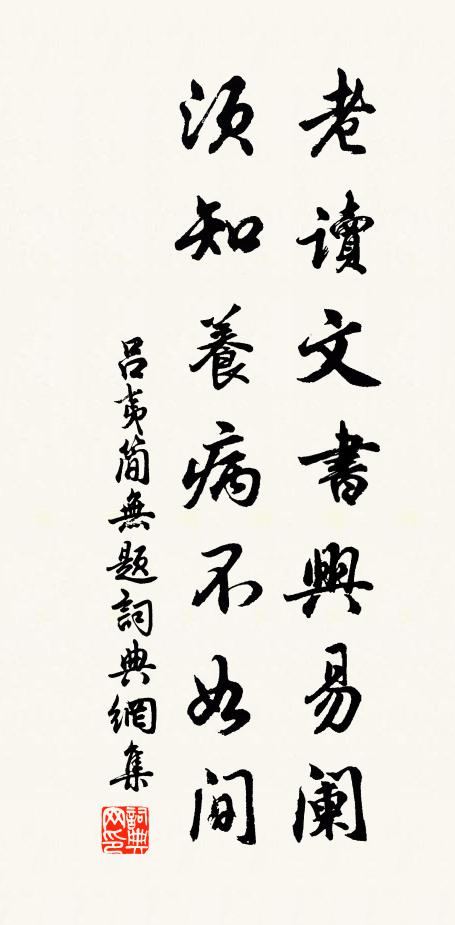 老讀文書興易阑
須知養病不如閒
吕夷簡無題詞典網集
詞典網印